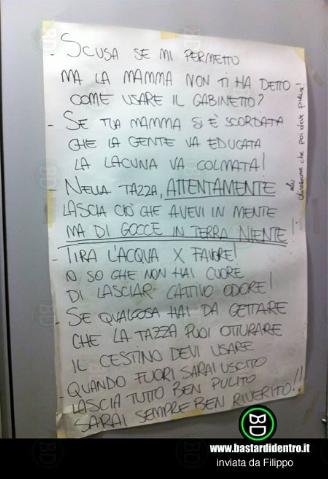 - SCUSA SE MI PERMETTO
MA LA MAMMA NON TI HA DETTO
COME USARE IL GABINETTO?
- SE TUA MAMMA SI È SCORDATA
CHE LA GENTE VA EDUCATA
LA LACUNA VA COLMATA!
- NELLA TAZZA, ATTENTAMENTE
LASCIA CIÒ CHE AVEVI IN MENTE
MA DI GOCCE IN TERRA NIENTE!
- TIRA L'ACQUA X FAVORE!
SO CHE NON HAI CUORE
DI LASCIAR CATTIVO ODORE!
- SE QUALCOSA HAI DA GETTARE
CHE LA TAZZA PUOI OTTURARE
IL CESTINO DEVI USARE
- QUANDO FUORI SARAI USCITO
LASCIA TUTTO BEN PULITO
SARAI SEMPRE BEN RIVERITO!!
che poi deve pulire!
BD
www.bastardidentro.it
inviata da Filippo